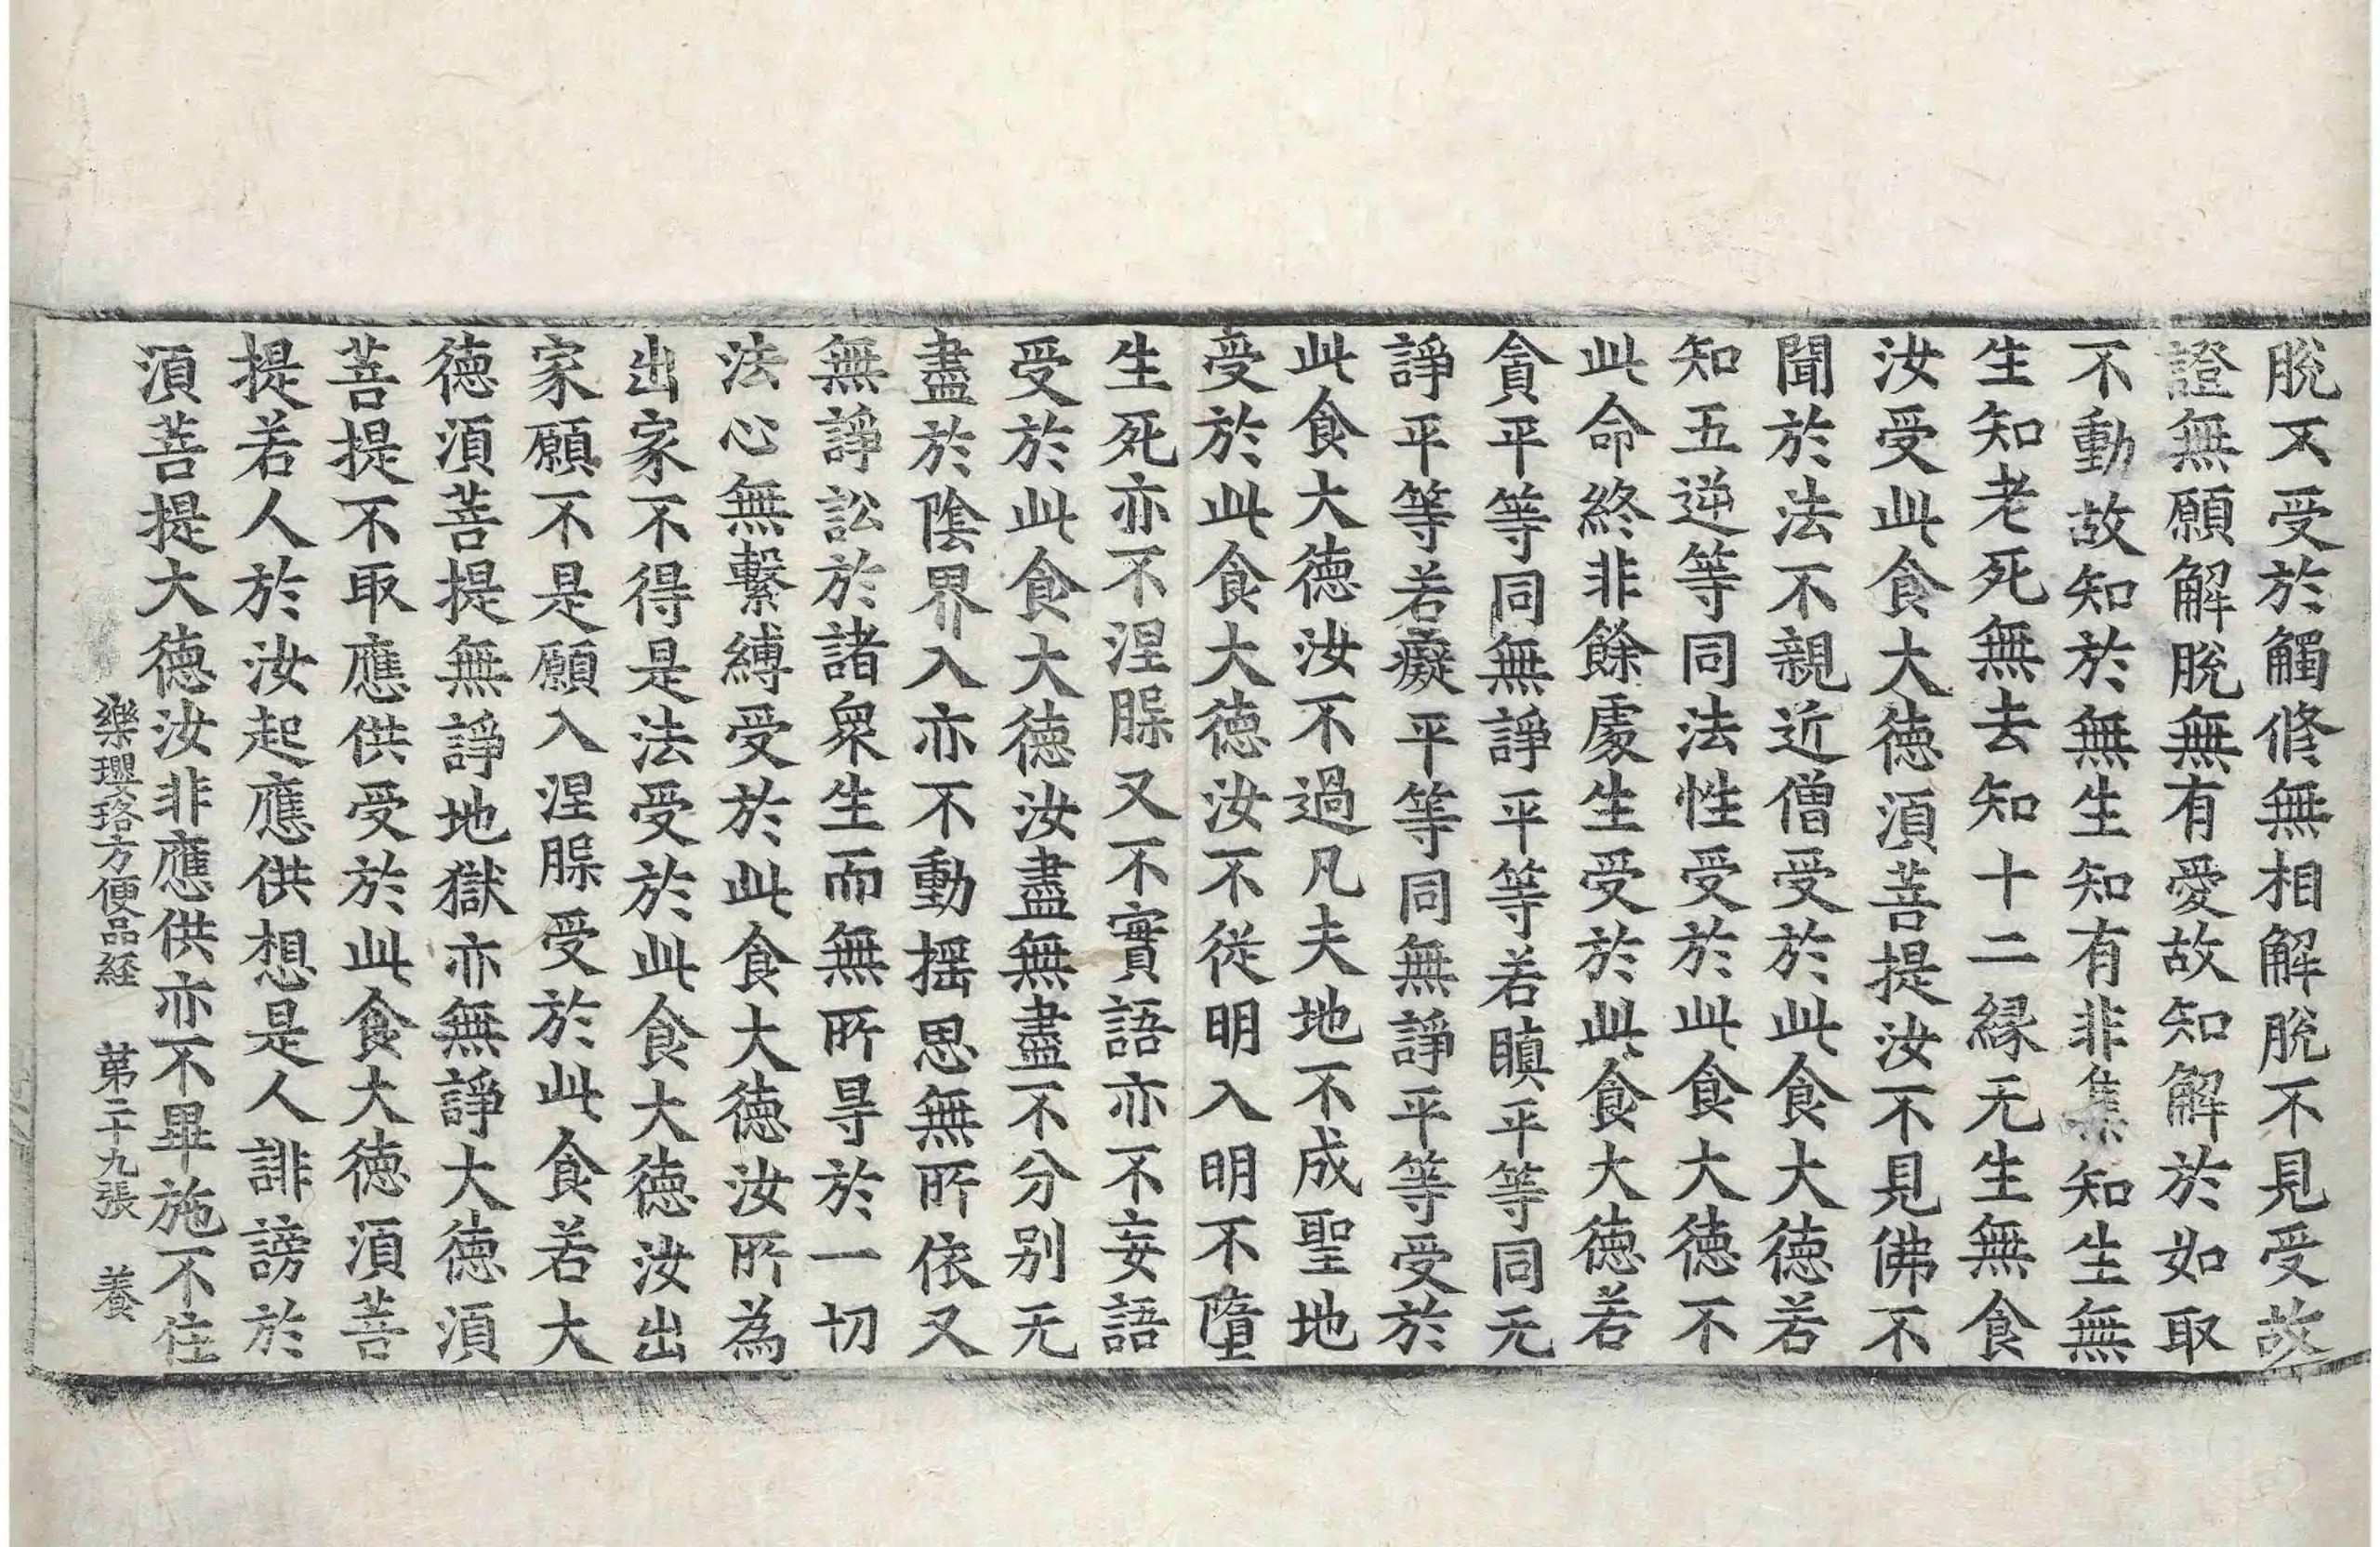 脫不受於觸修無相解脫不見受故
證無願解脫無有愛故知解於如取
不動故知於無生知有非集知生無
生知老死無去知十二縁无生無食
汝受此食大德湏菩提汝不見佛不
聞於法不親近僧受於此食大德若
知五逆等同法性受於此食大德不
此命終非餘處生受於此食大德若
貪平等同無諍平等若瞋平等同无
諍平等若癡平等同無諍平等受於
此食大德汝不過凡夫地不成聖地
受於此食大德汝不從明入明不墮
生死亦不涅槃又不實語亦不妄語
受於此食大德汝盡無盡不分别无
盡於陰界入亦不動搖思無所依又
無諍訟於諸衆生而無所㝵於一切
法心無繫縛受於此食大德汝所為
出家不得是法受於此食大德汝出
家願不是願入涅槃受於此食若大
德湏菩提無諍地獄亦無諍大德湏
菩提不取應供受於此食大德湏菩
提若人於汝起應供想是人誹謗於
湏菩提大德汝非應供亦不畢施不住
樂瓔珞方便品経　第二十九張　養